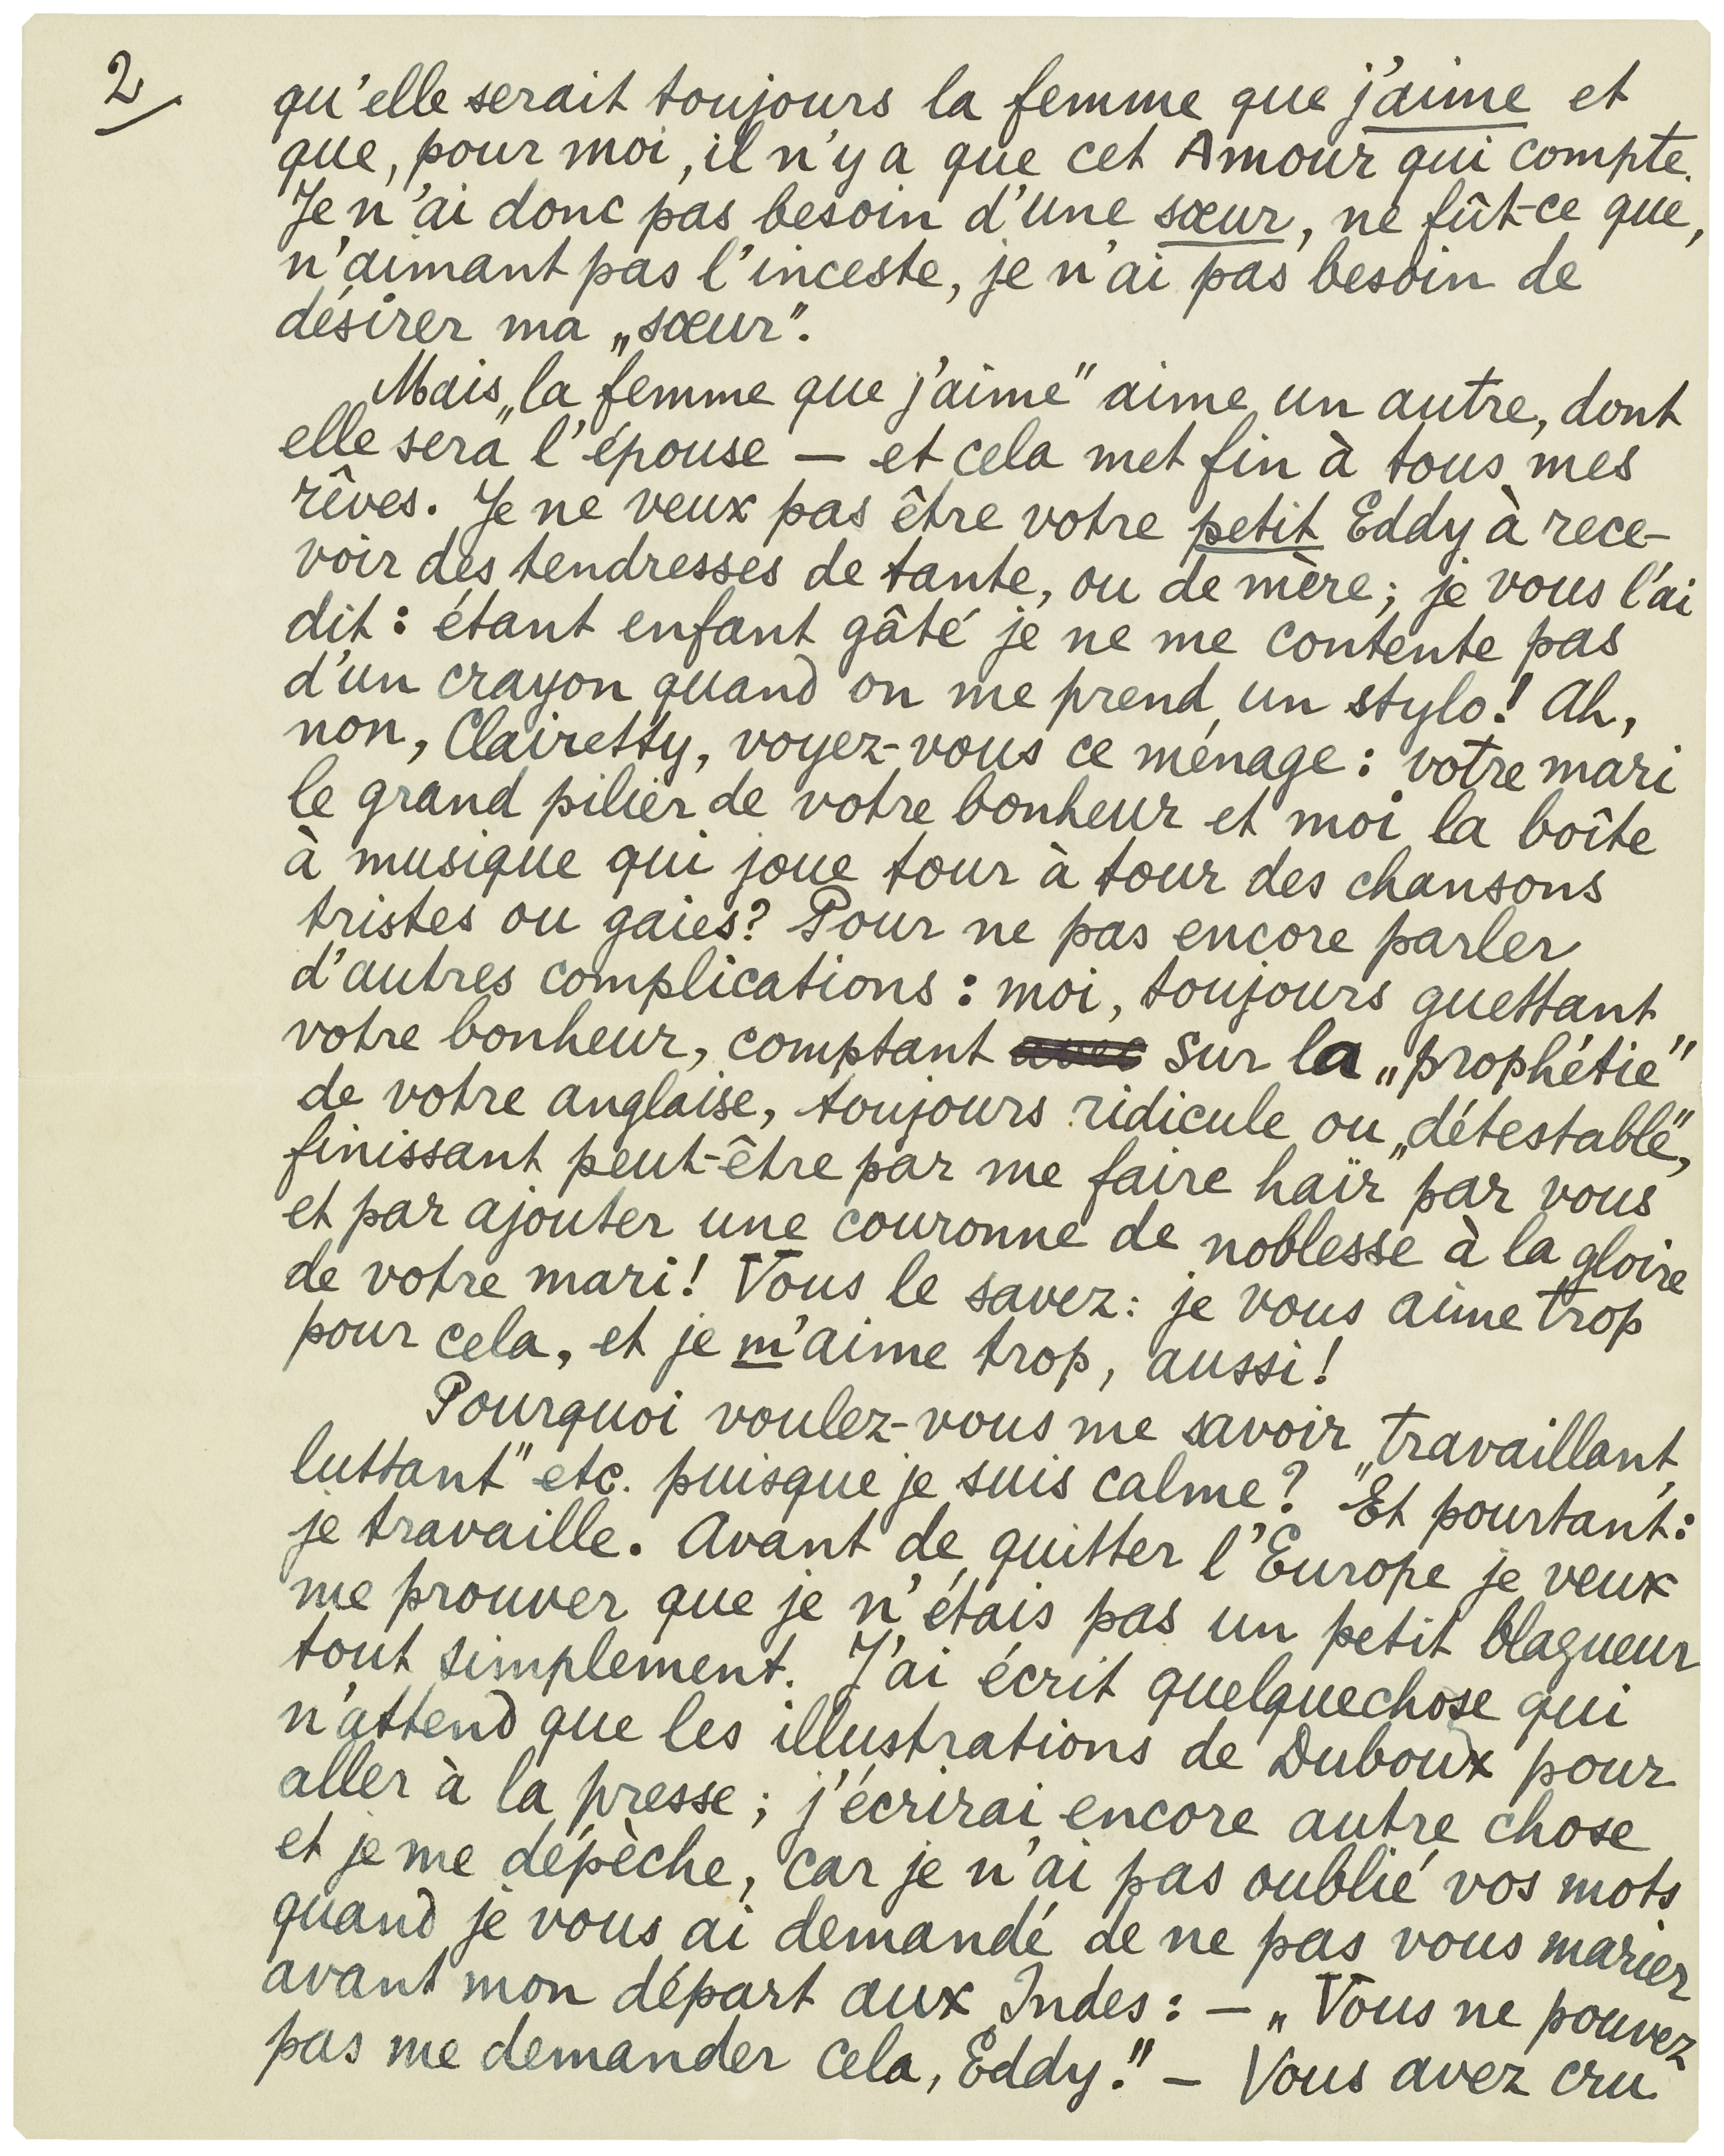 2
qu'elle serait toujours la femme que j'aime et
que, pour moi, il n'y a que cet Amour qui compte.
Je n'ai donc pas besoin d'une sœur, ne fût-ce que,
n'aimant pas l'inceste, je n'ai pas besoin de
désirer ma „sœur".
Mais „la femme que j'aime" aime un autre, dont
elle sera l'épouse — et cela met fin à tous mes
rêves. Je ne veux pas être votre petit Eddy à rece-
voir des tendresses de tante, ou de mère; je vous l'ai
dit: étant enfant gâté je ne me contente pas
d'un crayon quand on me prend un stylo! Ah,
non, Clairetty, voyez-vous ce ménage: votre mari
le grand pilier de votre bonheur et moi la boîte
à musique qui joue tour à tour des chansons
tristes ou gaies? Pour ne pas encore parler
d'autres complications: moi, toujours guettant
votre bonheur, comptant avec sur la „prophétie"
de votre anglaise, toujours ridicule ou „détestable",
finissant peut-être par me faire haïr par vous
et par ajouter une couronne de noblesse à la gloire
de votre mari! Vous le savez: je vous aime trop
pour cela, et je m'aime trop, aussi!
Pourquoi voulez-vous me savoir „travaillant,
luttant" etc. puisque je suis calme? Et pourtant:
je travaille. Avant de quitter l'Europe je veux
me prouver que je n'étais pas un petit blagueur
tout simplement. J'ai écrit quelquechose qui
n'attend que les illustrations de Duboux pour
aller à la presse; j'écrirai encore autre chose
et je me dépèche, car je n'ai pas oublié vos mots
quand je vous ai demandé de ne pas vous marier
avant mon départ aux Indes: — „Vous ne pouvez
pas me demander cela, Eddy!" — Vous avez cru